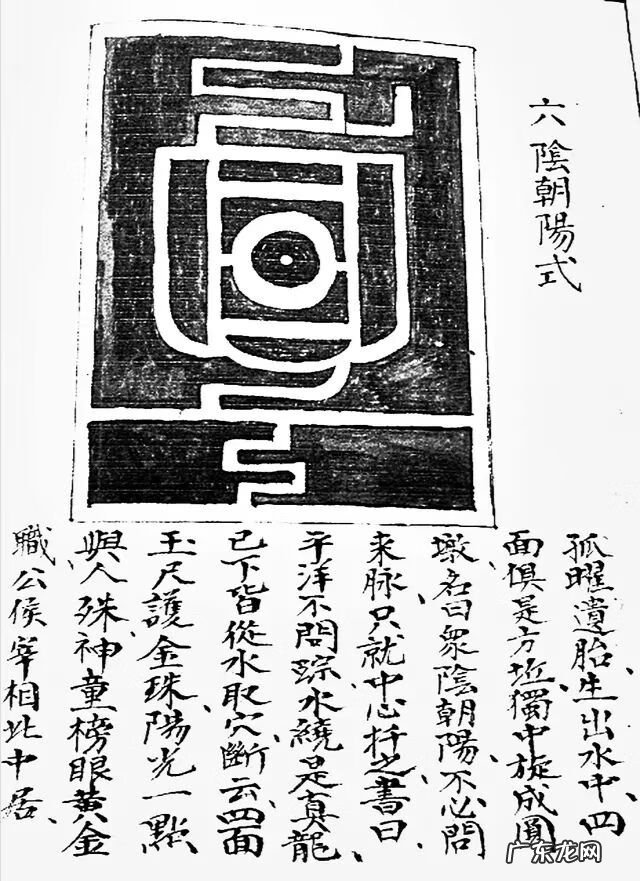 六陰朝陽式
孤曜遺胎、生出水中、四
面俱是方坵、獨中旋成圓
墩、名曰衆陰朝陽、不必問
来脉、只就中心扦之、書曰、
平洋不問踪、水繞是真龍、
已下皆從水取穴、斷云、四面
玉尺護金珠、陽光一點
與人殊、神童榜眼黄金
職、公侯宰相此中居、
广东龙网